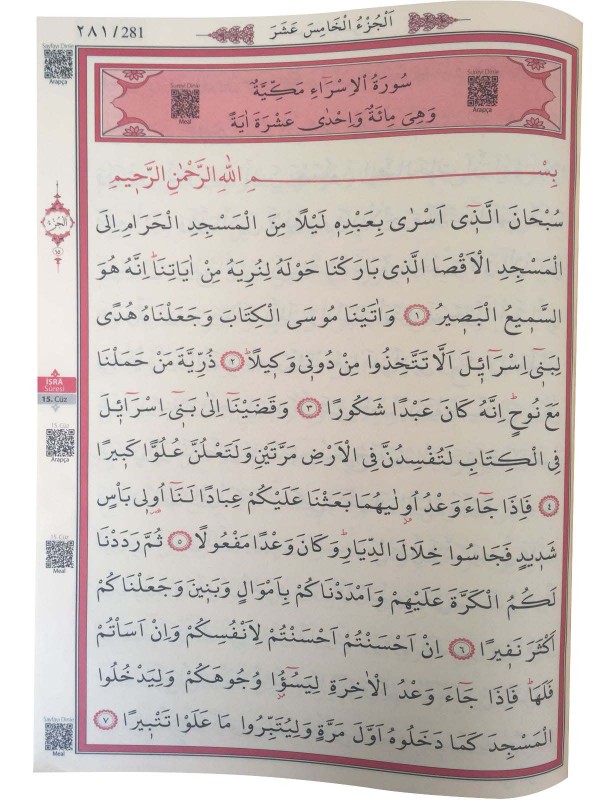 ٢٨١/281
اَلْجُزْءُ الْخَامِسَ عَشَرَ
Sayfayı Dinle
Arapça
Sureyi Dinle
Meal
Sureyi Dinle
Arapça
سُورَةُ الْاِسْرَاءِ مَكِّيَّةٌ
وَهِىَ مِائَةٌ وَاِحْدٰى عَشْرَةَ اٰيَةً
بِسْمِ اللّٰهِ الرَّحْمٰنِ الرَّحٖيمِ
سُبْحَانَ الَّذٖٓى اَسْرٰى بِعَبْدِهٖ لَيْلًا مِنَ الْمَسْجِدِ الْحَرَامِ اِلَى
الْمَسْجِدِ الْاَقْصَا الَّذٖى بَارَكْنَا حَوْلَهُ لِنُرِيَهُ مِنْ اٰيَاتِنَاۜ اِنَّهُ هُوَ
السَّمٖيعُ الْبَصٖيرُ ١ وَاٰتَيْنَا مُوسَى الْكِتَابَ وَجَعَلْنَاهُ هُدًى
لِبَنٖٓى اِسْرَآئٖلَ اَلَّا تَتَّخِذُوا مِنْ دُونٖى وَكٖيلًاۜ ٢ ذُرِّيَّةَ مَنْ حَمَلْنَا
مَعَ نُوحٍۜ اِنَّهُ كَانَ عَبْدًا شَكُورًا ٣ وَقَضَيْنَٓا اِلٰى بَنٖٓى اِسْرَآئٖلَ
فِى الْكِتَابِ لَتُفْسِدُنَّ فِى الْاَرْضِ مَرَّتَيْنِ وَلَتَعْلُنَّ عُلُوًّا كَبٖيرًا
٤ فَاِذَا جَٓاءَ وَعْدُ اُو۫لٰيهُمَا بَعَثْنَا عَلَيْكُمْ عِبَادًا لَنَٓا اُو۬لٖى بَأْسٍ
شَدٖيدٍ فَجَاسُوا خِلَالَ الدِّيَارِۜ وَكَانَ وَعْدًا مَفْعُولًا ٥ ثُمَّ رَدَدْنَا
لَكُمُ الْكَرَّةَ عَلَيْهِمْ وَاَمْدَدْنَاكُمْ بِاَمْوَالٍ وَبَنٖينَ وَجَعَلْنَاكُمْ
اَكْثَرَ نَفٖيرًا ٦ اِنْ اَحْسَنْتُمْ اَحْسَنْتُمْ لِاَنْفُسِكُمْ وَاِنْ اَسَأْتُمْ
فَلَهَاۜ فَاِذَا جَٓاءَ وَعْدُ الْاٰخِرَةِ لِيَسُٓؤُ۫ا وُجُوهَكُمْ وَلِيَدْخُلُوا
الْمَسْجِدَ كَمَا دَخَلُوهُ اَوَّلَ مَرَّةٍ وَلِيُتَبِّرُوا مَا عَلَوْا تَتْبٖيرًا ٧
اَلْجُزْءُ
١٥
İSRÂ
Suresi
15. Cüz
15. Cüz
Arapça
15. Cüz
Meal
Sayfayı Dinle
Meal